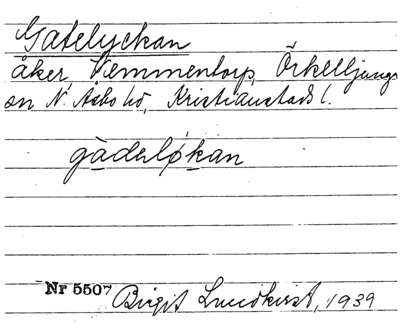 Gatelyckan
åker, Vemmentorp, Örkelljungs
sn N. Asbo hd, Kristianstads l.
gàdeløkan
Nr 5507 Birgit Lundkvist, 1939